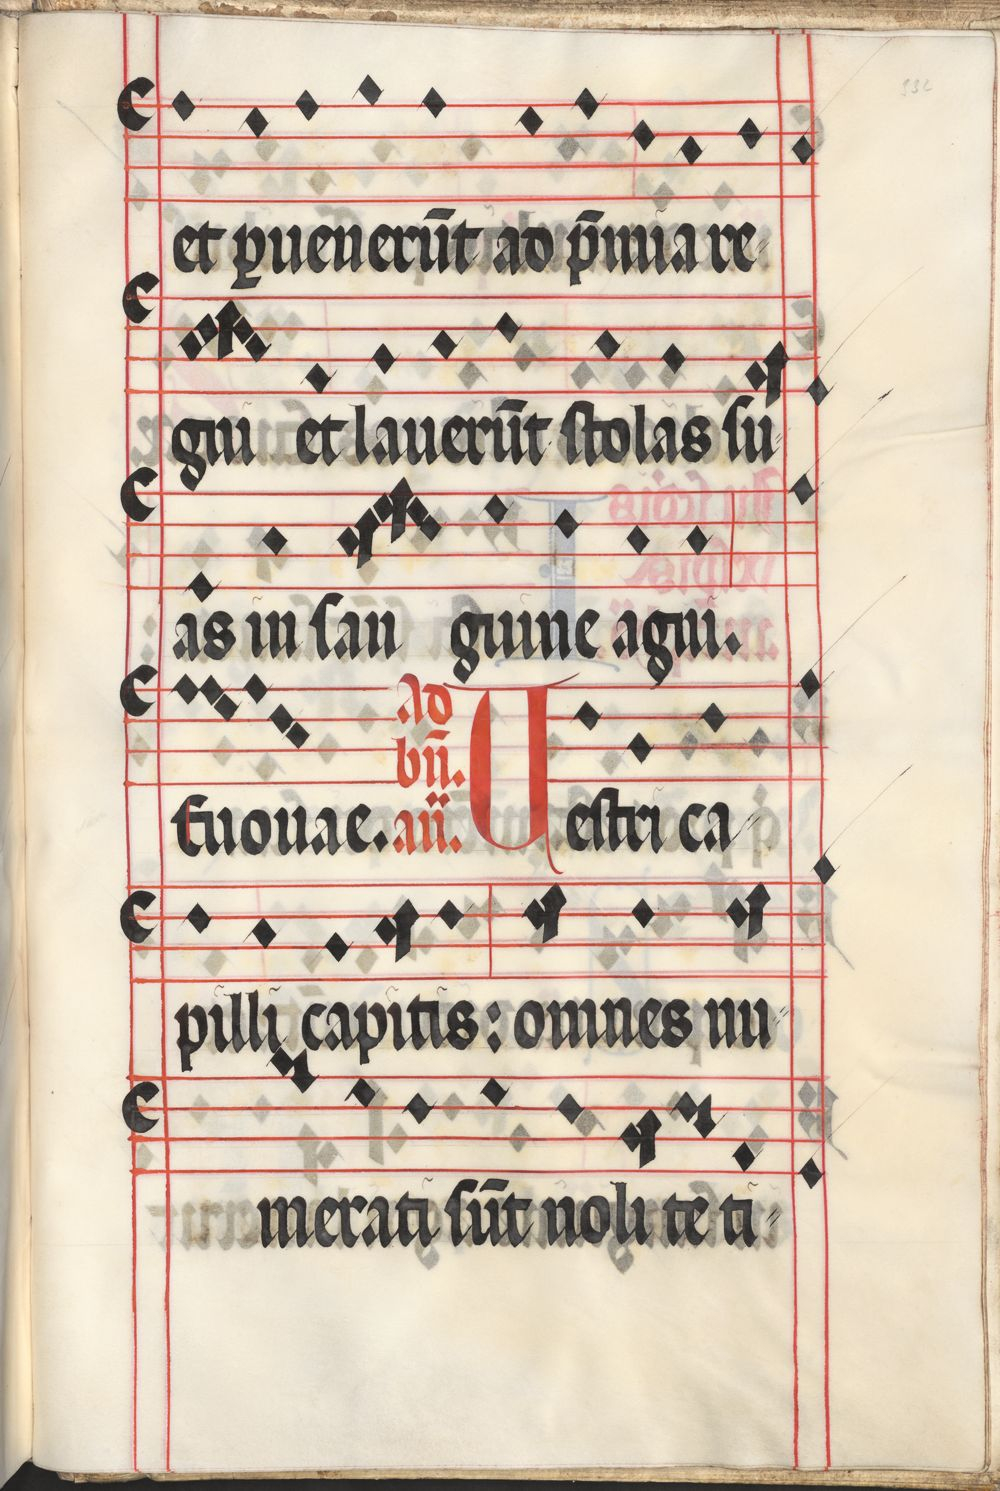 332
et ꝑuenerūt ad p̄mia re⸗
gni et lauerūt stolas su⸗
as in san guine agni.
euouae. ad bn̄. an̄. Uestri ca⸗
pilli capitis: omnes nu⸗
merati sūt nolite ti⸗